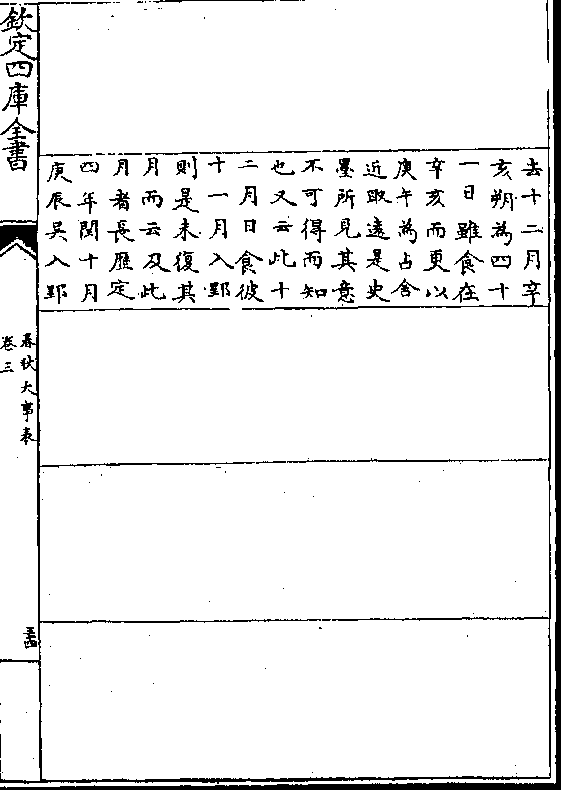 去十二月辛
亥朔為四十
一日雖食在
辛亥而更以
庚午為占舍
近取遠是史
墨所見其意
不可得而知
也又云此十
二月日食彼
十一月入郢
則是未復其
月而云及此
月者長歴定
四年閏十月
庚辰吳入郢
欽定四庫全書
春秋大事表
卷三